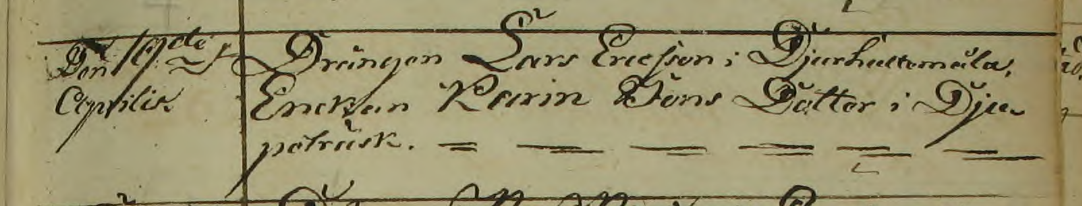 Den 19de
Aprilis.
Drängen Lars Ericsson i Djurhultemåla,
Enckan Karin Jöns Dotter i Dju-
peträsk.